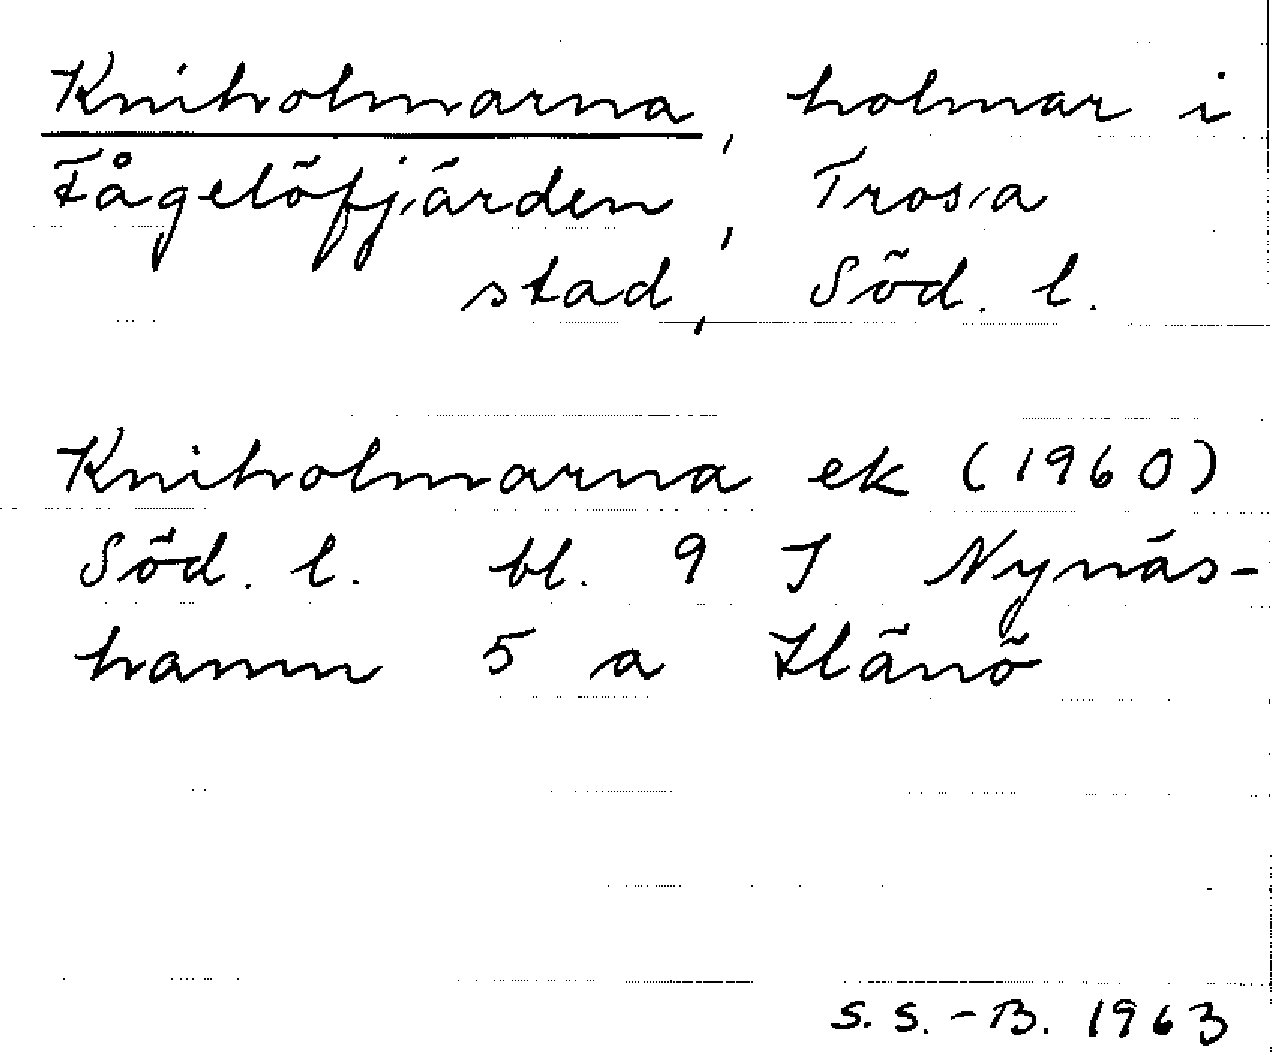 Kniholmarna, holmar i
Fågelöfjärden, Trosa
stad, Söd. l.
Kniholmarna ek (1960)
Söd. l. bl. 9 I Nynäs-
hamn 5 a Hänö
S. S.-B. 1963